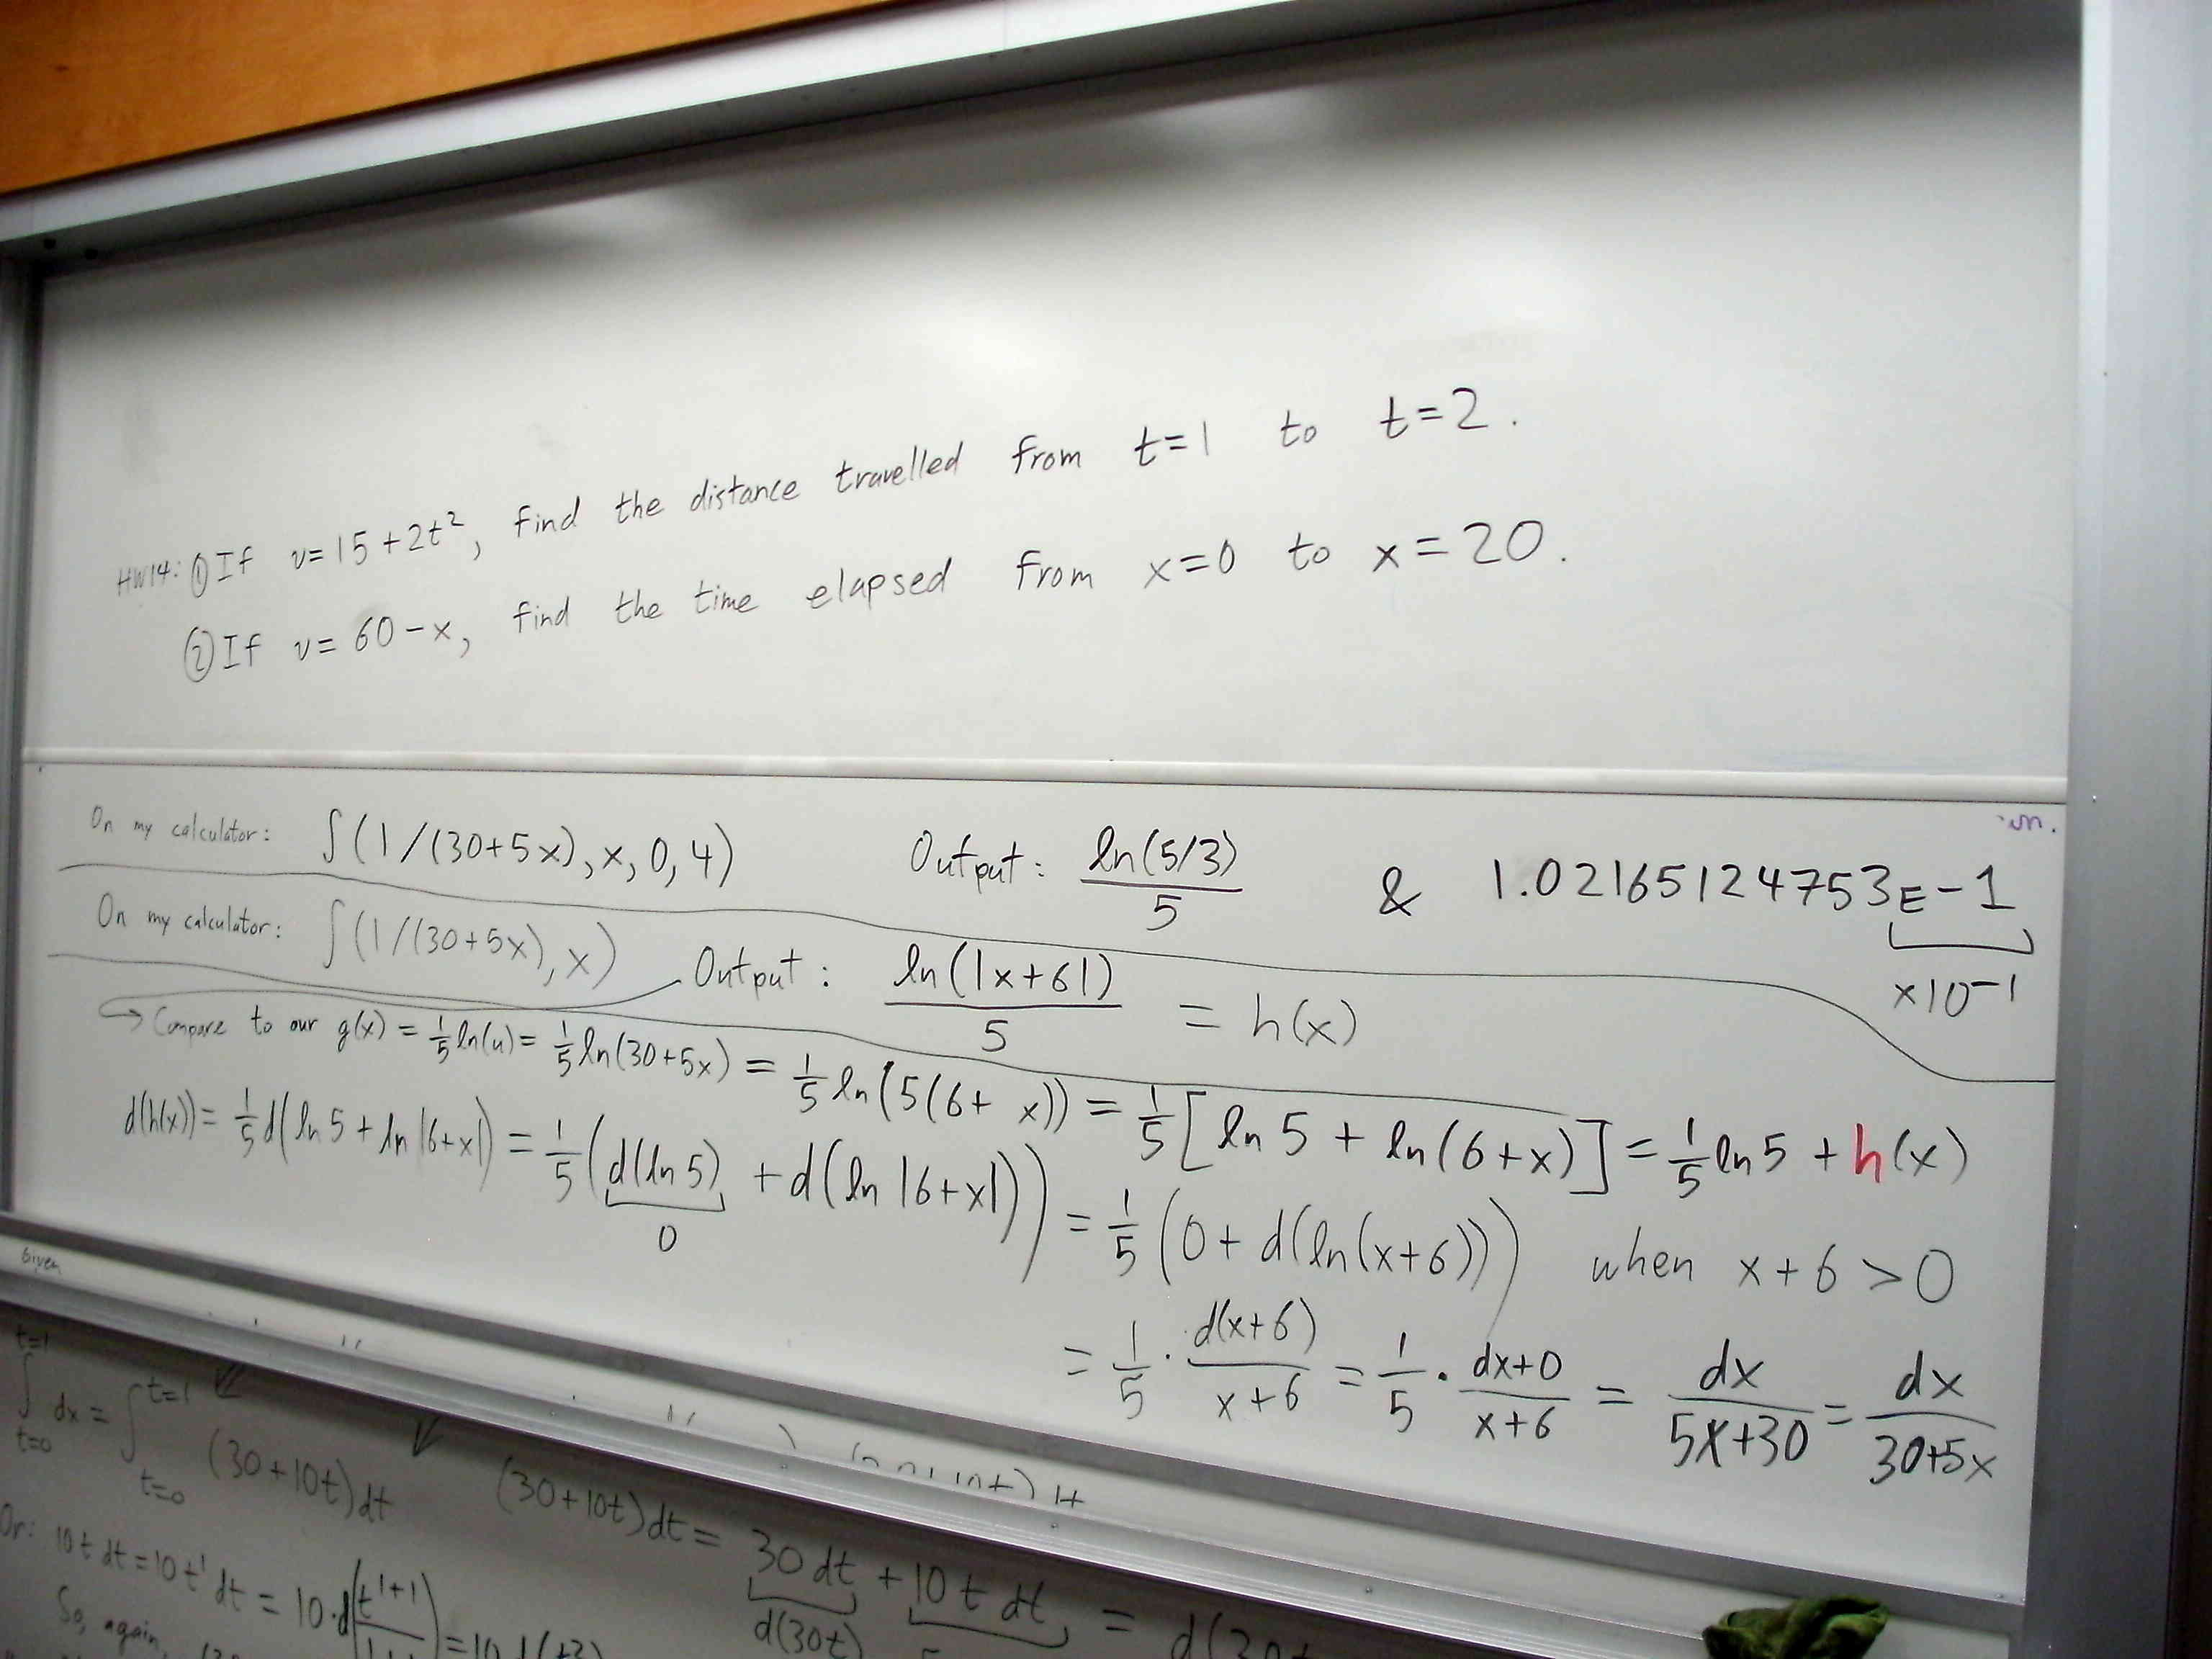 HW14: ① If v=15+2t², find the distance travelled from t=1 to t=2.
② If v=60-x, find the time elapsed from x=0 to x=20.
On my calculator: ∫(1/(30+5x),x,0,4) Output: ln(5/3)/5 & 1.02165124753E-1
×10⁻¹
On my calculator: ∫(1/(30+5x),x) Output: ln(|x+6|)/5 = h(x)
↪ Compare to our g(x) = 1/5 ln(u) = 1/5 ln(30+5x) = 1/5 ln(5(6+ x)) = 1/5 [ln 5 + ln(6+x)] = 1/5 ln 5 + h(x)
d(h(x)) = 1/5 d(ln 5 + ln |6+x|) = 1/5 (d(ln 5) + d(ln |6+x|)) = 1/5 (0 + d(ln(x+6))) when x+6 > 0
0
= 1/5 · d(x+6)/(x+6) = 1/5 · (dx+0)/(x+6) = dx/(5x+30) = dx/(30+5x)
Given
∫ t=0 t=1 dx = ∫ t=0 t=1 (30+10t)dt (30+10t)dt = 30 dt + 10 t dt = d(30t
d(30t)
Or: 10 t dt = 10 t¹ dt = 10·d(t¹⁺¹
So, again,